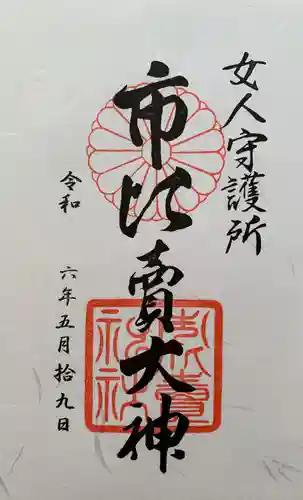 女人守護所
市比賣大神
令和
六年五月拾九日
市比賣神社